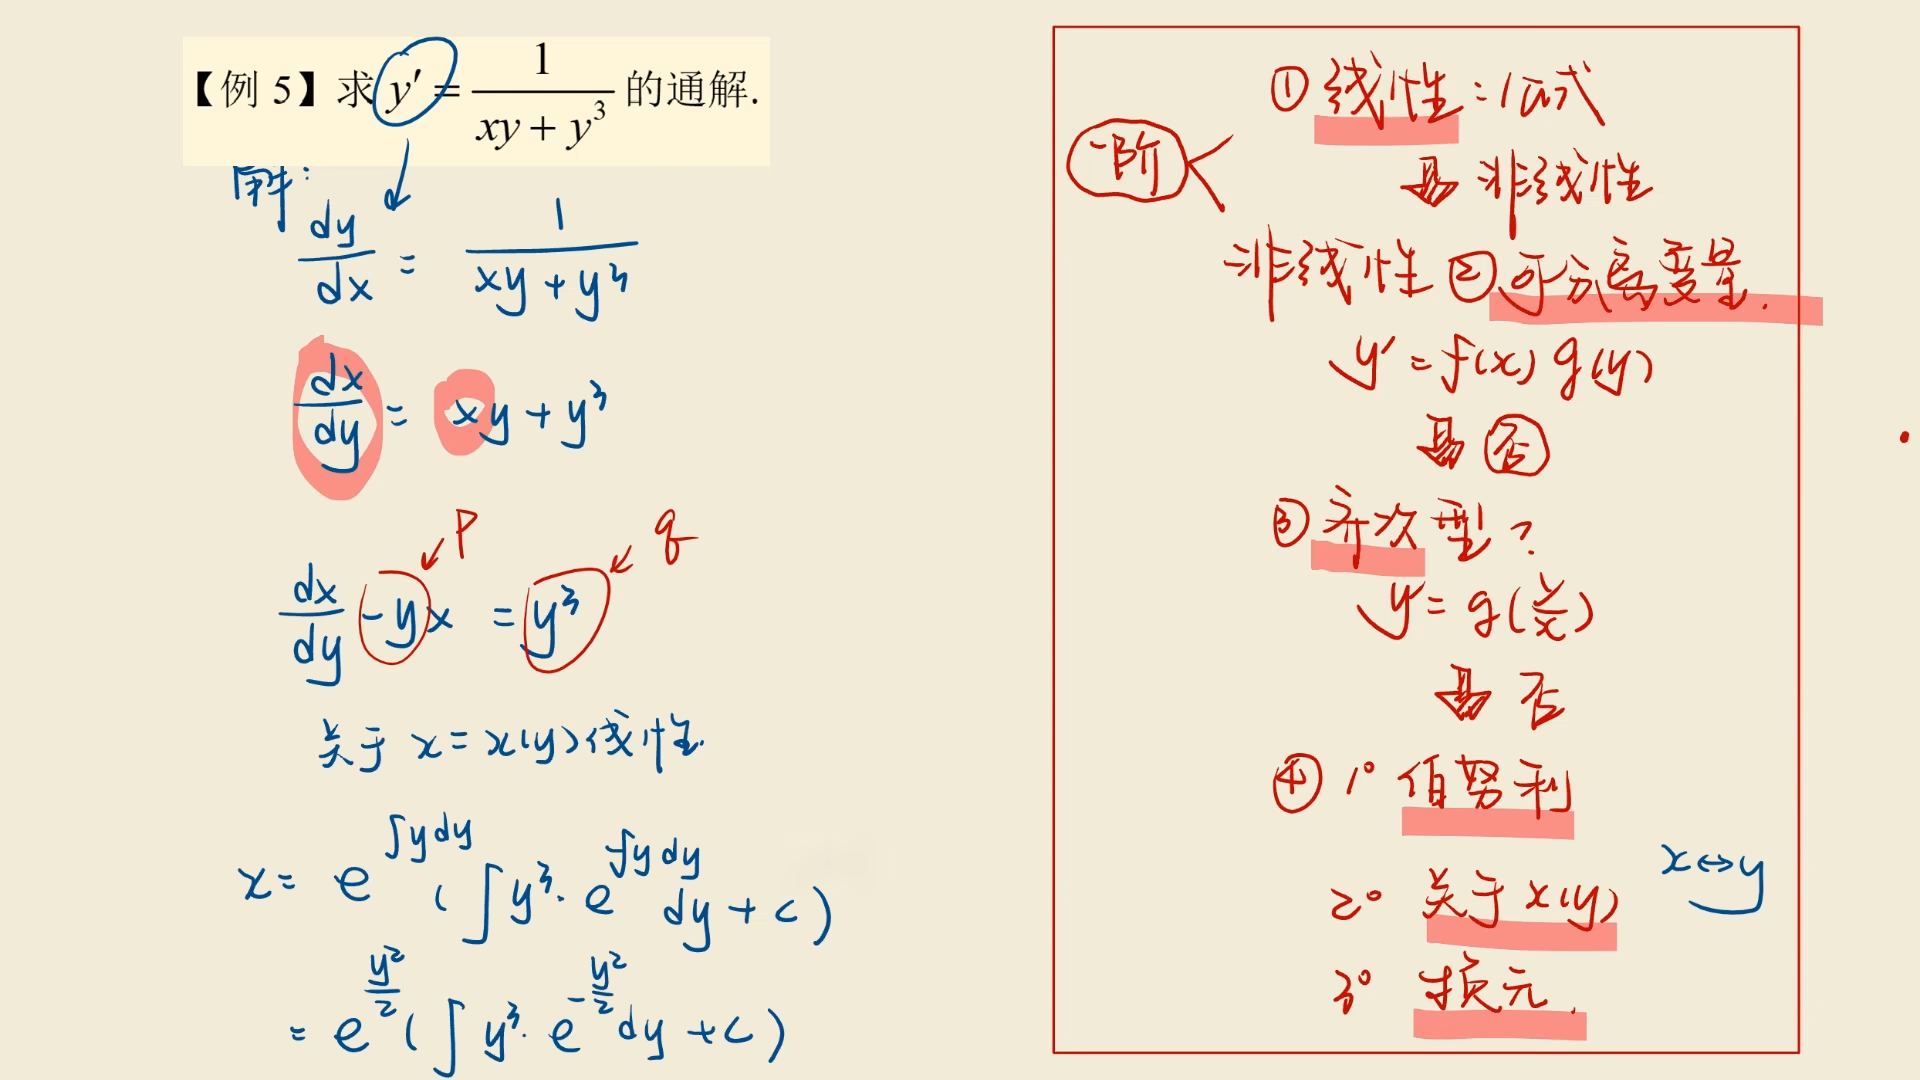 【例 5】求 y′ = 1/(xy + y³) 的通解.
解:
dy/dx = 1/(xy + y³)
dx/dy = xy + y³
P
q
dx/dy - yx = y³
关于 x = x(y) 线性.
x = e^{∫y dy} ( ∫ y³ · e^{-∫y dy} dy + C )
= e^{y²/2} ( ∫ y³ · e^{-y²/2} dy + C )
一阶
① 线性 : 1公式
⇓ 非线性
非线性 ② 可分离变量.
y′ = f(x) g(y)
⇓ 否
③ 齐次型?
y′ = g(y/x)
⇓ 否
④ 1° 伯努利
2° 关于 x(y)
x↔y
3° 换元.